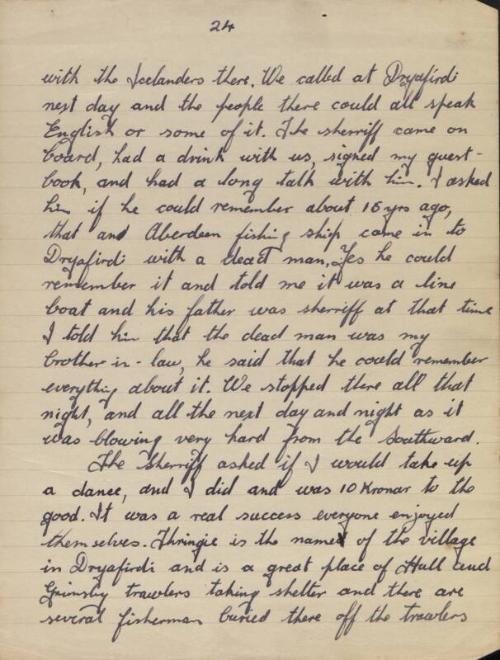 24
with the Icelanders there. We called at Dryafirdi
nest day and the people there could all speak
English or some of it. The sherriff came on
board, had a drink with us, signed my guest-
book, and had a long talk with him. I asked
him if he could remember about 16 yrs ago,
that and Aberdeen fishing ship came in to
Dryafirdi with a dead man, Yes he could
remember it and told me it was a line
boat and his father was sherriff at that time
I told him that the dead man was my
brother-in-law, he said that he could remember
everything about it. We stopped there all that
night, and all the nest day and night as it
was blowing very hard from the Southward.
The Sherriff asked if I would take up
a dance, and I did and was 10 Kronar to the
good. It was a real success everyone enjoyed
themselves. Thringie is the name of the village
in Dryafirdi and is a great place of Hull and
Grimsby trawlers taking shelter and there are
several fisherman buried there off the trawlers